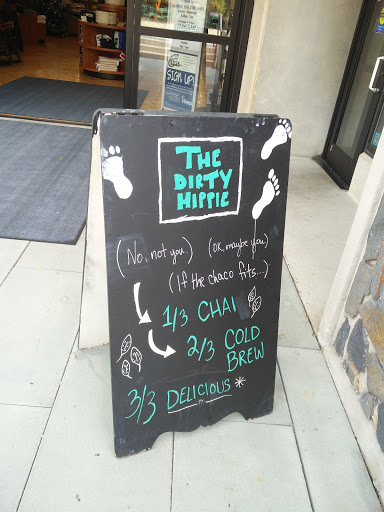 SIGN UP!
THE
DIRTY
HIPPIE
(No, not you) (OK, maybe you)
(If the chaco fits...)
1/3 CHAI
2/3 COLD
BREW
3/3 DELICIOUS *